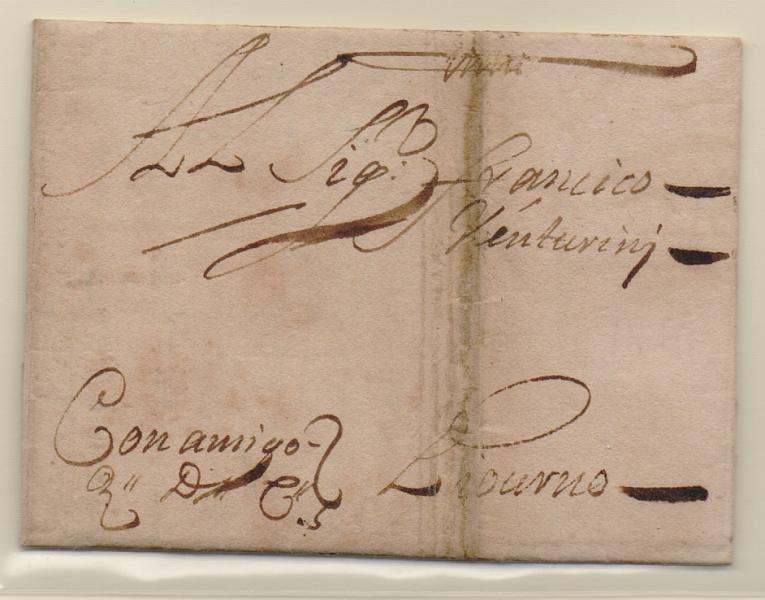 All Sig.r Francico
Venturinj
Con amigo
q" D" G"
Liourno